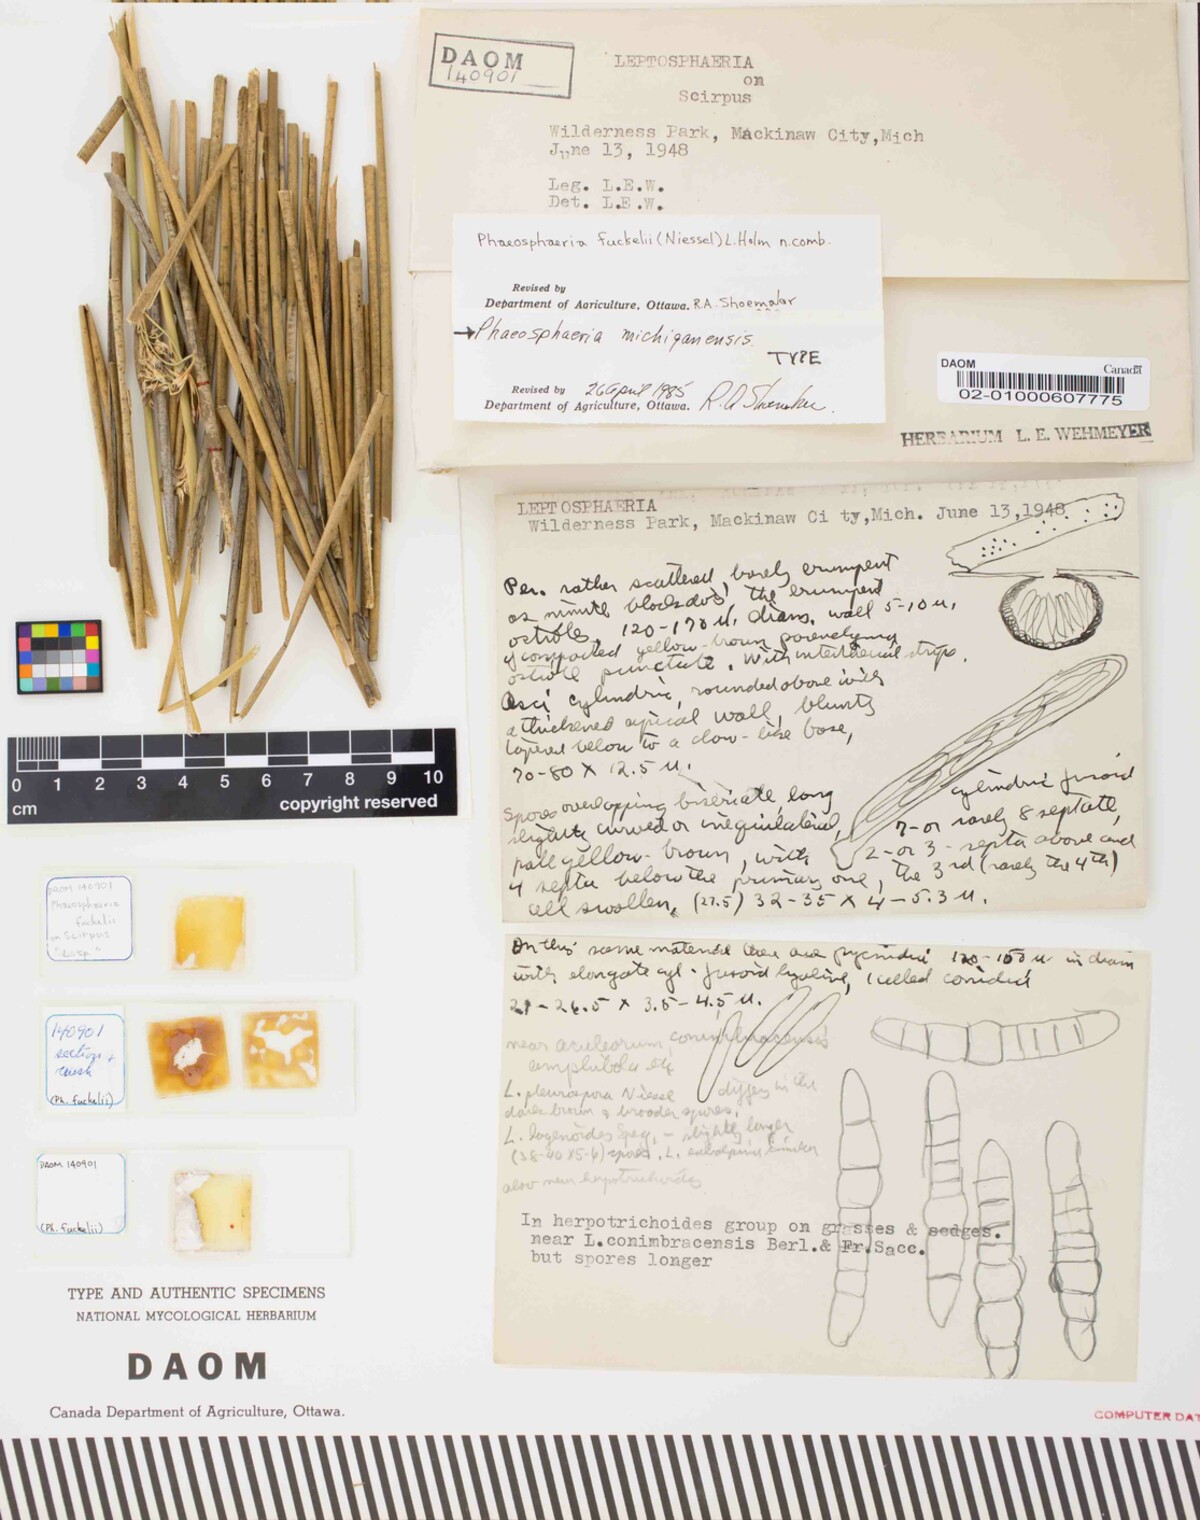 DAOM
140901
LEPTOSPHAERIA
on
Scirpus
Wilderness Park, Mackinaw City,Mich
June 13, 1948
Leg. L.E.W.
Det. L.E.W.
Phaeosphaeria fuckelii (Niessel) L. Holm n. comb.
Revised by
Department of Agriculture, Ottawa. R.A. Shoemaker
→Phaeosphaeria michiganensis
TYPE
Revised by 26 April 1985
Department of Agriculture, Ottawa. R A Shoemaker.
DAOM Canada
02-01000607775
HERBARIUM L. E. WEHMEYER
LEPTOSPHAERIA
Wilderness Park, Mackinaw Ci ty,Mich. June 13,1948
Per. rather scattered, barely erumpent
as minute black dots, the erumpent
ostioles, 120-170 µ, diam. wall 5-10 µ,
of compacted yellow-brown parenchyma
ostiole punctate. With interthecial strips.
Asci cylindric, rounded above with
a thickened apical wall, bluntly
tapered below to a claw-like base,
70-80 X 12.5 µ.
Spores overlapping biseriate, long cylindric fusoid
slightly curved or inequilateral, 7- or rarely 8 septate,
pale yellow-brown, with 2- or 3- septa above and
4 septa below the primary one, the 3rd (rarely the 4th)
cell swollen, (27.5) 32-35 X 4-5.3 µ.
On this same material there are pycnidia 120-150 µ in diam
with elongate cyl-fusoid hyaline, 1 celled conidia
21-26.5 X 3.5-4.5 µ.
near aculeorum conimbracensis
amphibola etc
L. pleurospora Niessl differs in the
dark brown & broader spores.
L. lagenoides Speg. - slightly longer
(38-40 X 5-6) spores. L.
also near herpotrichoides
In herpotrichoides group on grasses & sedges.
near L.conimbracensis Berl.& Fr.Sacc.
but spores longer
0 1 2 3 4 5 6 7 8 9 10
cm copyright reserved
DAOM 140901
Phaeosphaeria
fuckelii
on Scirpus
140901
section +
crush
(Ph. fuckelii)
DAOM 140901
(Ph. fuckelii)
TYPE AND AUTHENTIC SPECIMENS
NATIONAL MYCOLOGICAL HERBARIUM
DAOM
Canada Department of Agriculture, Ottawa.
COMPUTER DAT